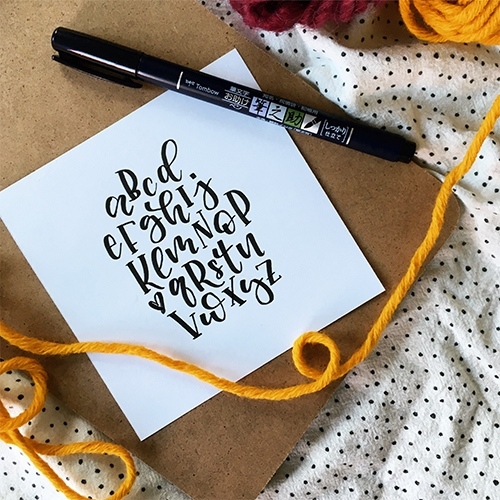 Tombow
筆文字
お助け
筆之助
しっかり
仕立て
aBcd
eFghIj
KlmNOP
♥qRstu
VwXyz